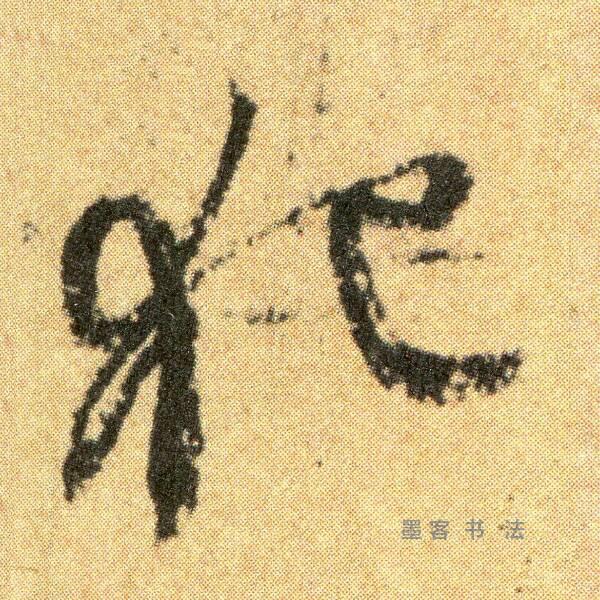 犯
墨客书法